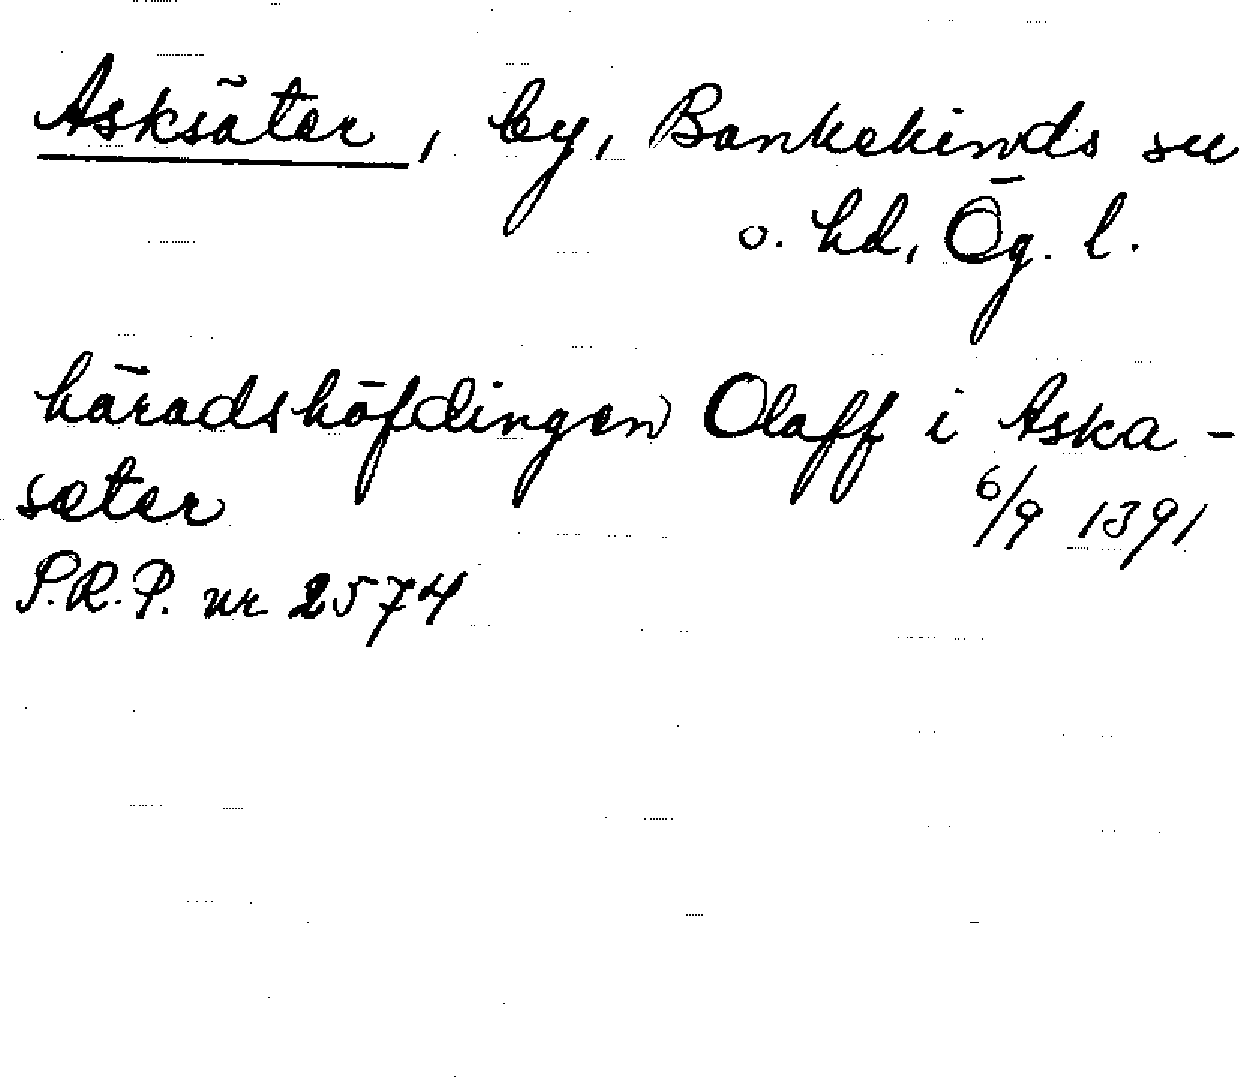 Asksäter, by, Bankekinds sn
o. hd, Ög. l.
häradshöfdingen Olaff i Aska-
sæter 6/9 1391
S.R.P. nr 2574